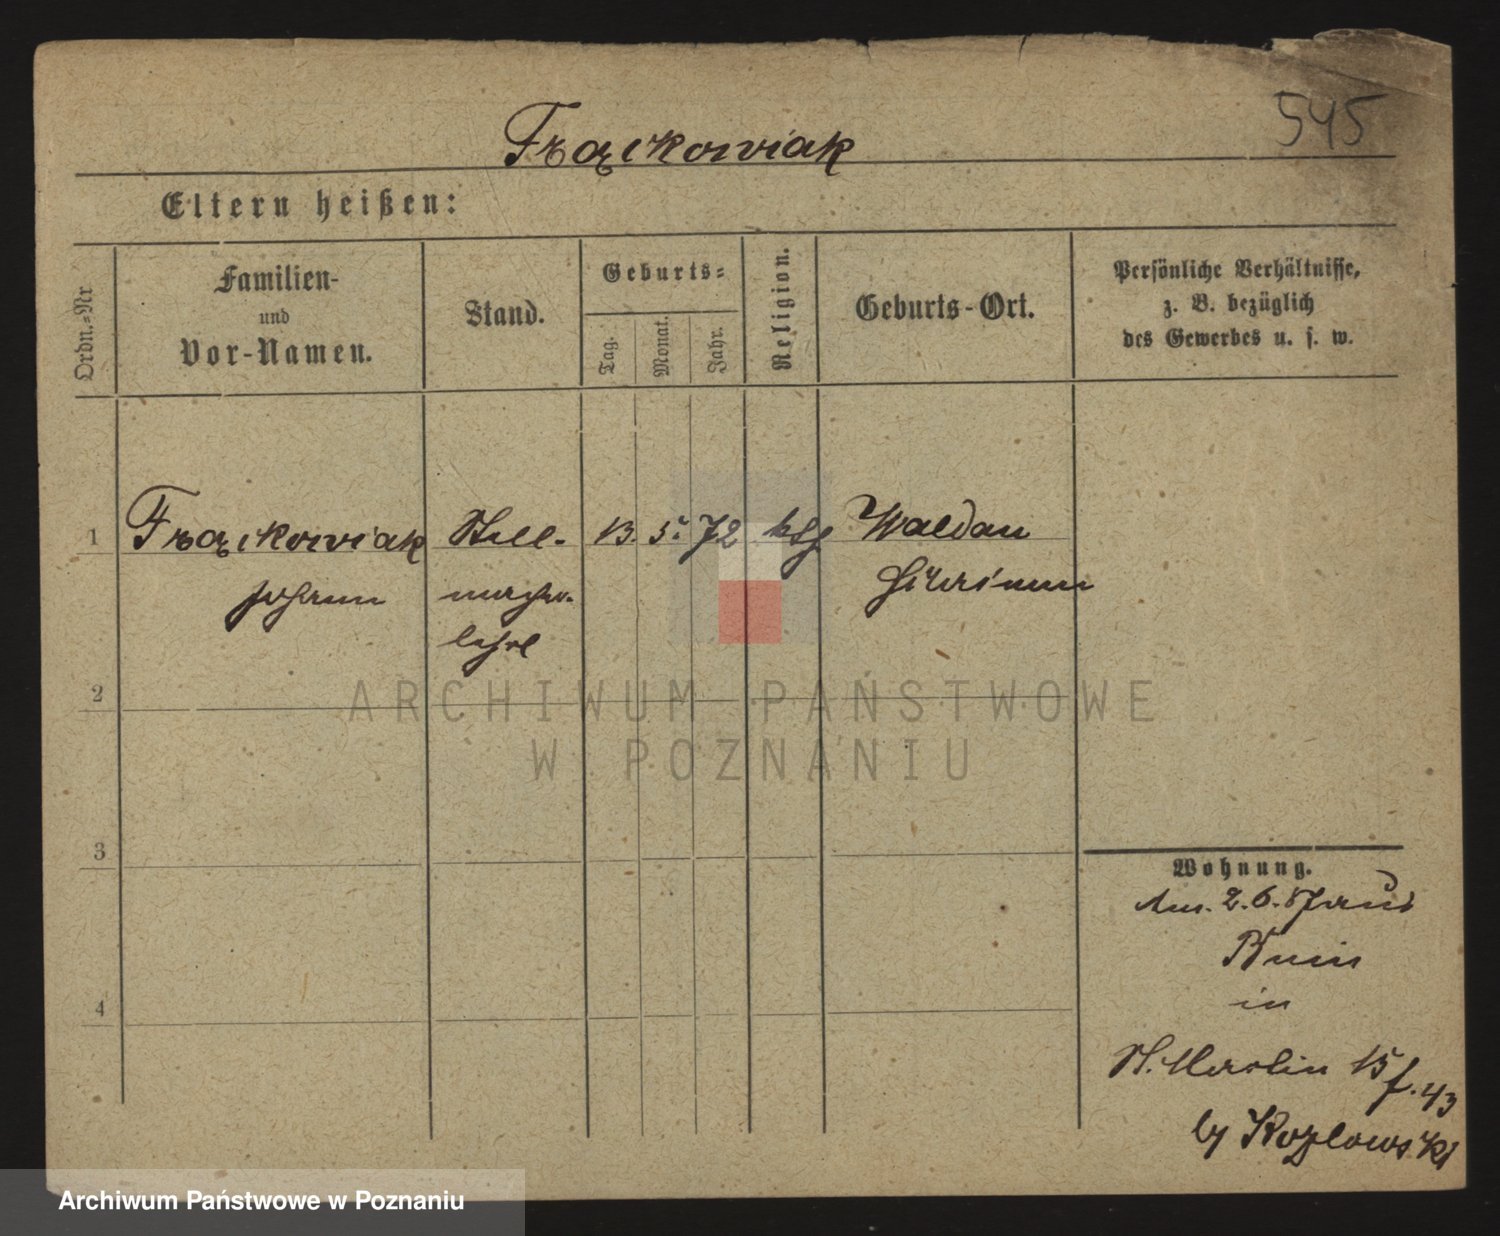 545
Frąckowiak
Eltern heißen:
Ordn.-Nr
Familien-
und
Vor-Namen.
Stand.
Geburts-
Tag.
Monat.
Jahr.
Religion.
Geburts-Ort.
Persönliche Verhältnisse,
z. B. bezüglich
des Gewerbes u. s. w.
1 Frąckowiak Stell- 13. 5. 72 kth Waldau
Johann macher-
lehrl
2
3
4
ARCHIWUM PAŃSTWOWE
W POZNANIU
Wohnung.
2. 6. 87 aus
in
St. Martin 15
by Kozlowski
Archiwum Państwowe w Poznaniu